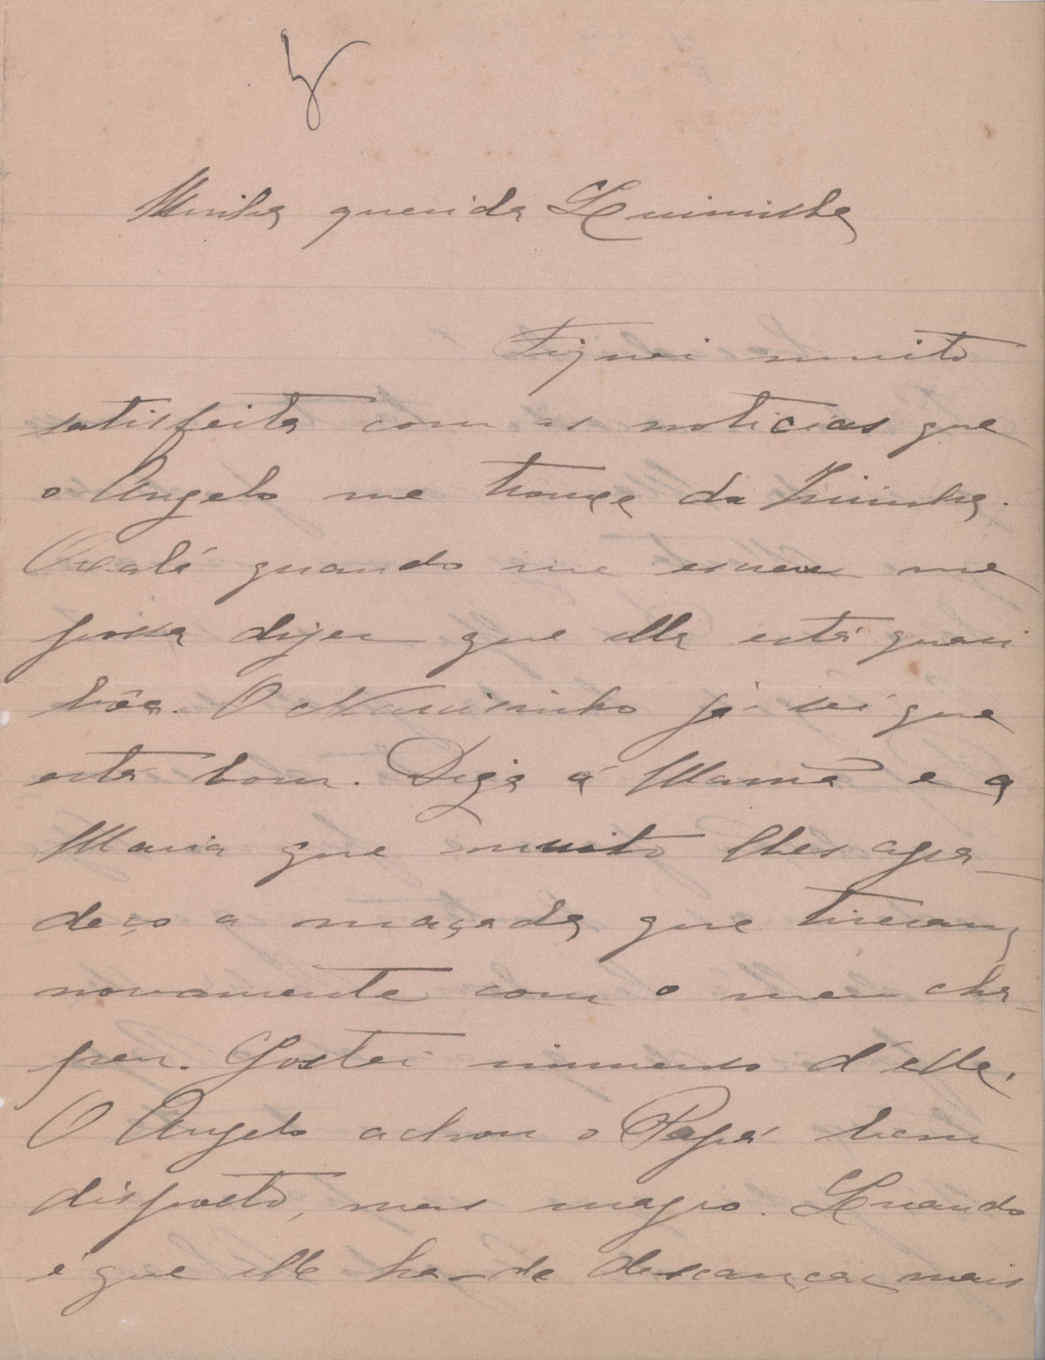 Minha querida Quininha
Fiquei muito
satisfeita com as noticias que
o Angelo me trouxe da Zizinha.
Oxalá quando me escrever me
possa dizer que ella está quasi
bôa. O Narcisinho já sei que
está bom. Diga á Mamã e a
Maria que muito lhes agra-
deço a maçada que tiveram
novamente com o meu cha-
peu. Gostei immenso d'elle.
O Angelo achou o Papá bem
disposto, mas magro. Quando
é que elle ha-de descançar mais